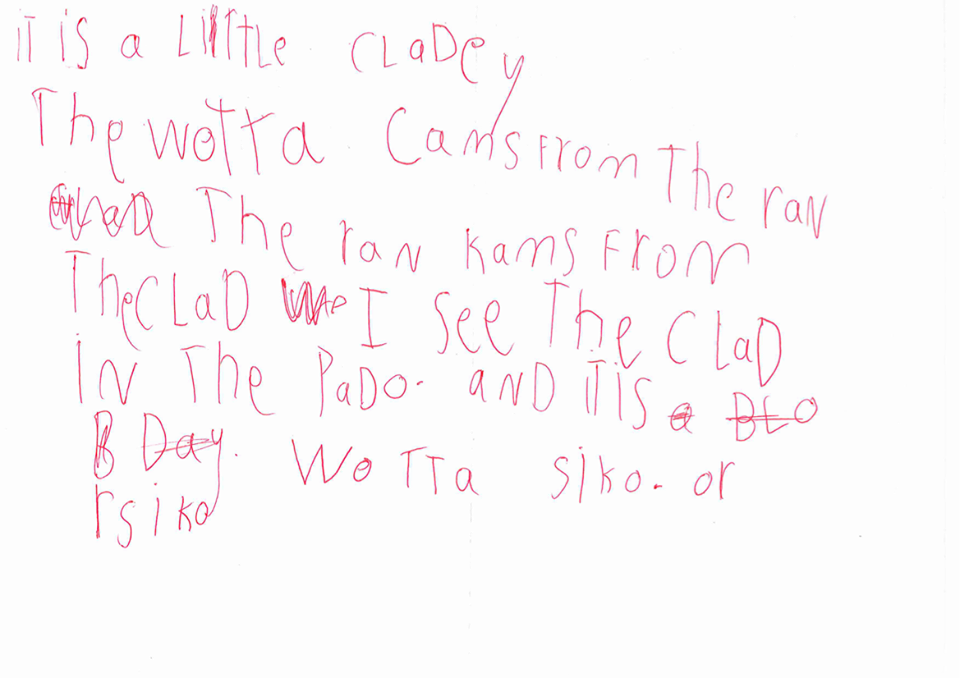 iT iS a LiTTLe CLaDey
The WoTTa Cams From The raN
The raN kams From
The CLaD I See The CLaD
iN The PaDo. aND iT iS a BLO
B Day. WoTTa Siko. or
rsiko